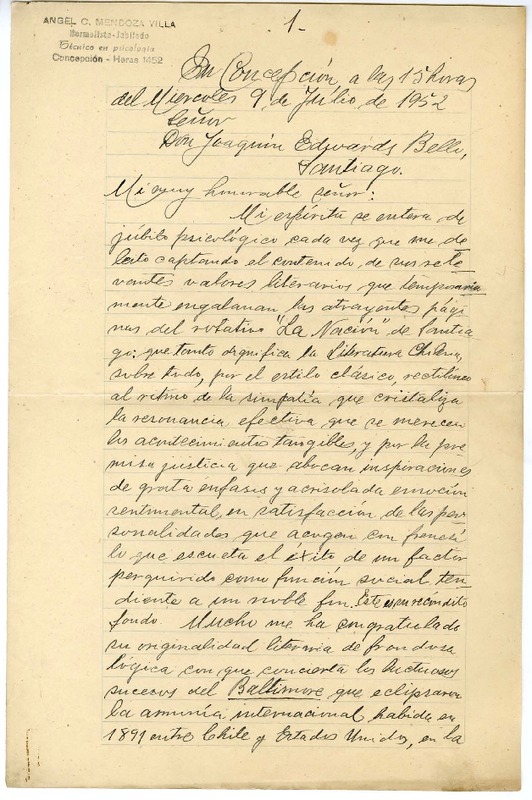 1.
ANGEL C. MENDOZA VILLA
Normalista-Jubilado
Técnico en psicología
Concepción - Heras 1452
En Concepción a las 15 horas
del Miercoles 9 de Julio de 1952
Señor
Don Joaquín Edwards Bello,
Santiago.
Mi muy honorable señor:
Mi espíritu se entera de
júbilo psicológico cada vez que me de
leito captando el contenido de sus rele
vantes valores literarios que temporaria
mente engalanan las atrayentes pági
nas del rotativo "La Nación" de Santia
go; que tanto dignifica la Literatura Chilena,
sobre todo, por el estilo clásico, rectilíneo
al ritmo de la simpatía que cristaliza
la resonancia efectiva que se merecen
los acontecimientos tangibles y por la pre
misa justicia que abocan inspiraciones
de grata enfasis y acrisolada emoción
sentimental, en satisfacción de las per
sonalidades que acogen con frenesí
lo que escueta el éxito de un factor
perquirido como función social ten
diente a un noble fin. Este es su recóndito
fondo. Mucho me ha congratulado
su originalidad literaria de frondosa
lógica con que concierta los luctuosos
sucesos del Baltimore que eclipsaron
la armonía internacional habida en
1891 entre Chile y Estados Unidos, en la